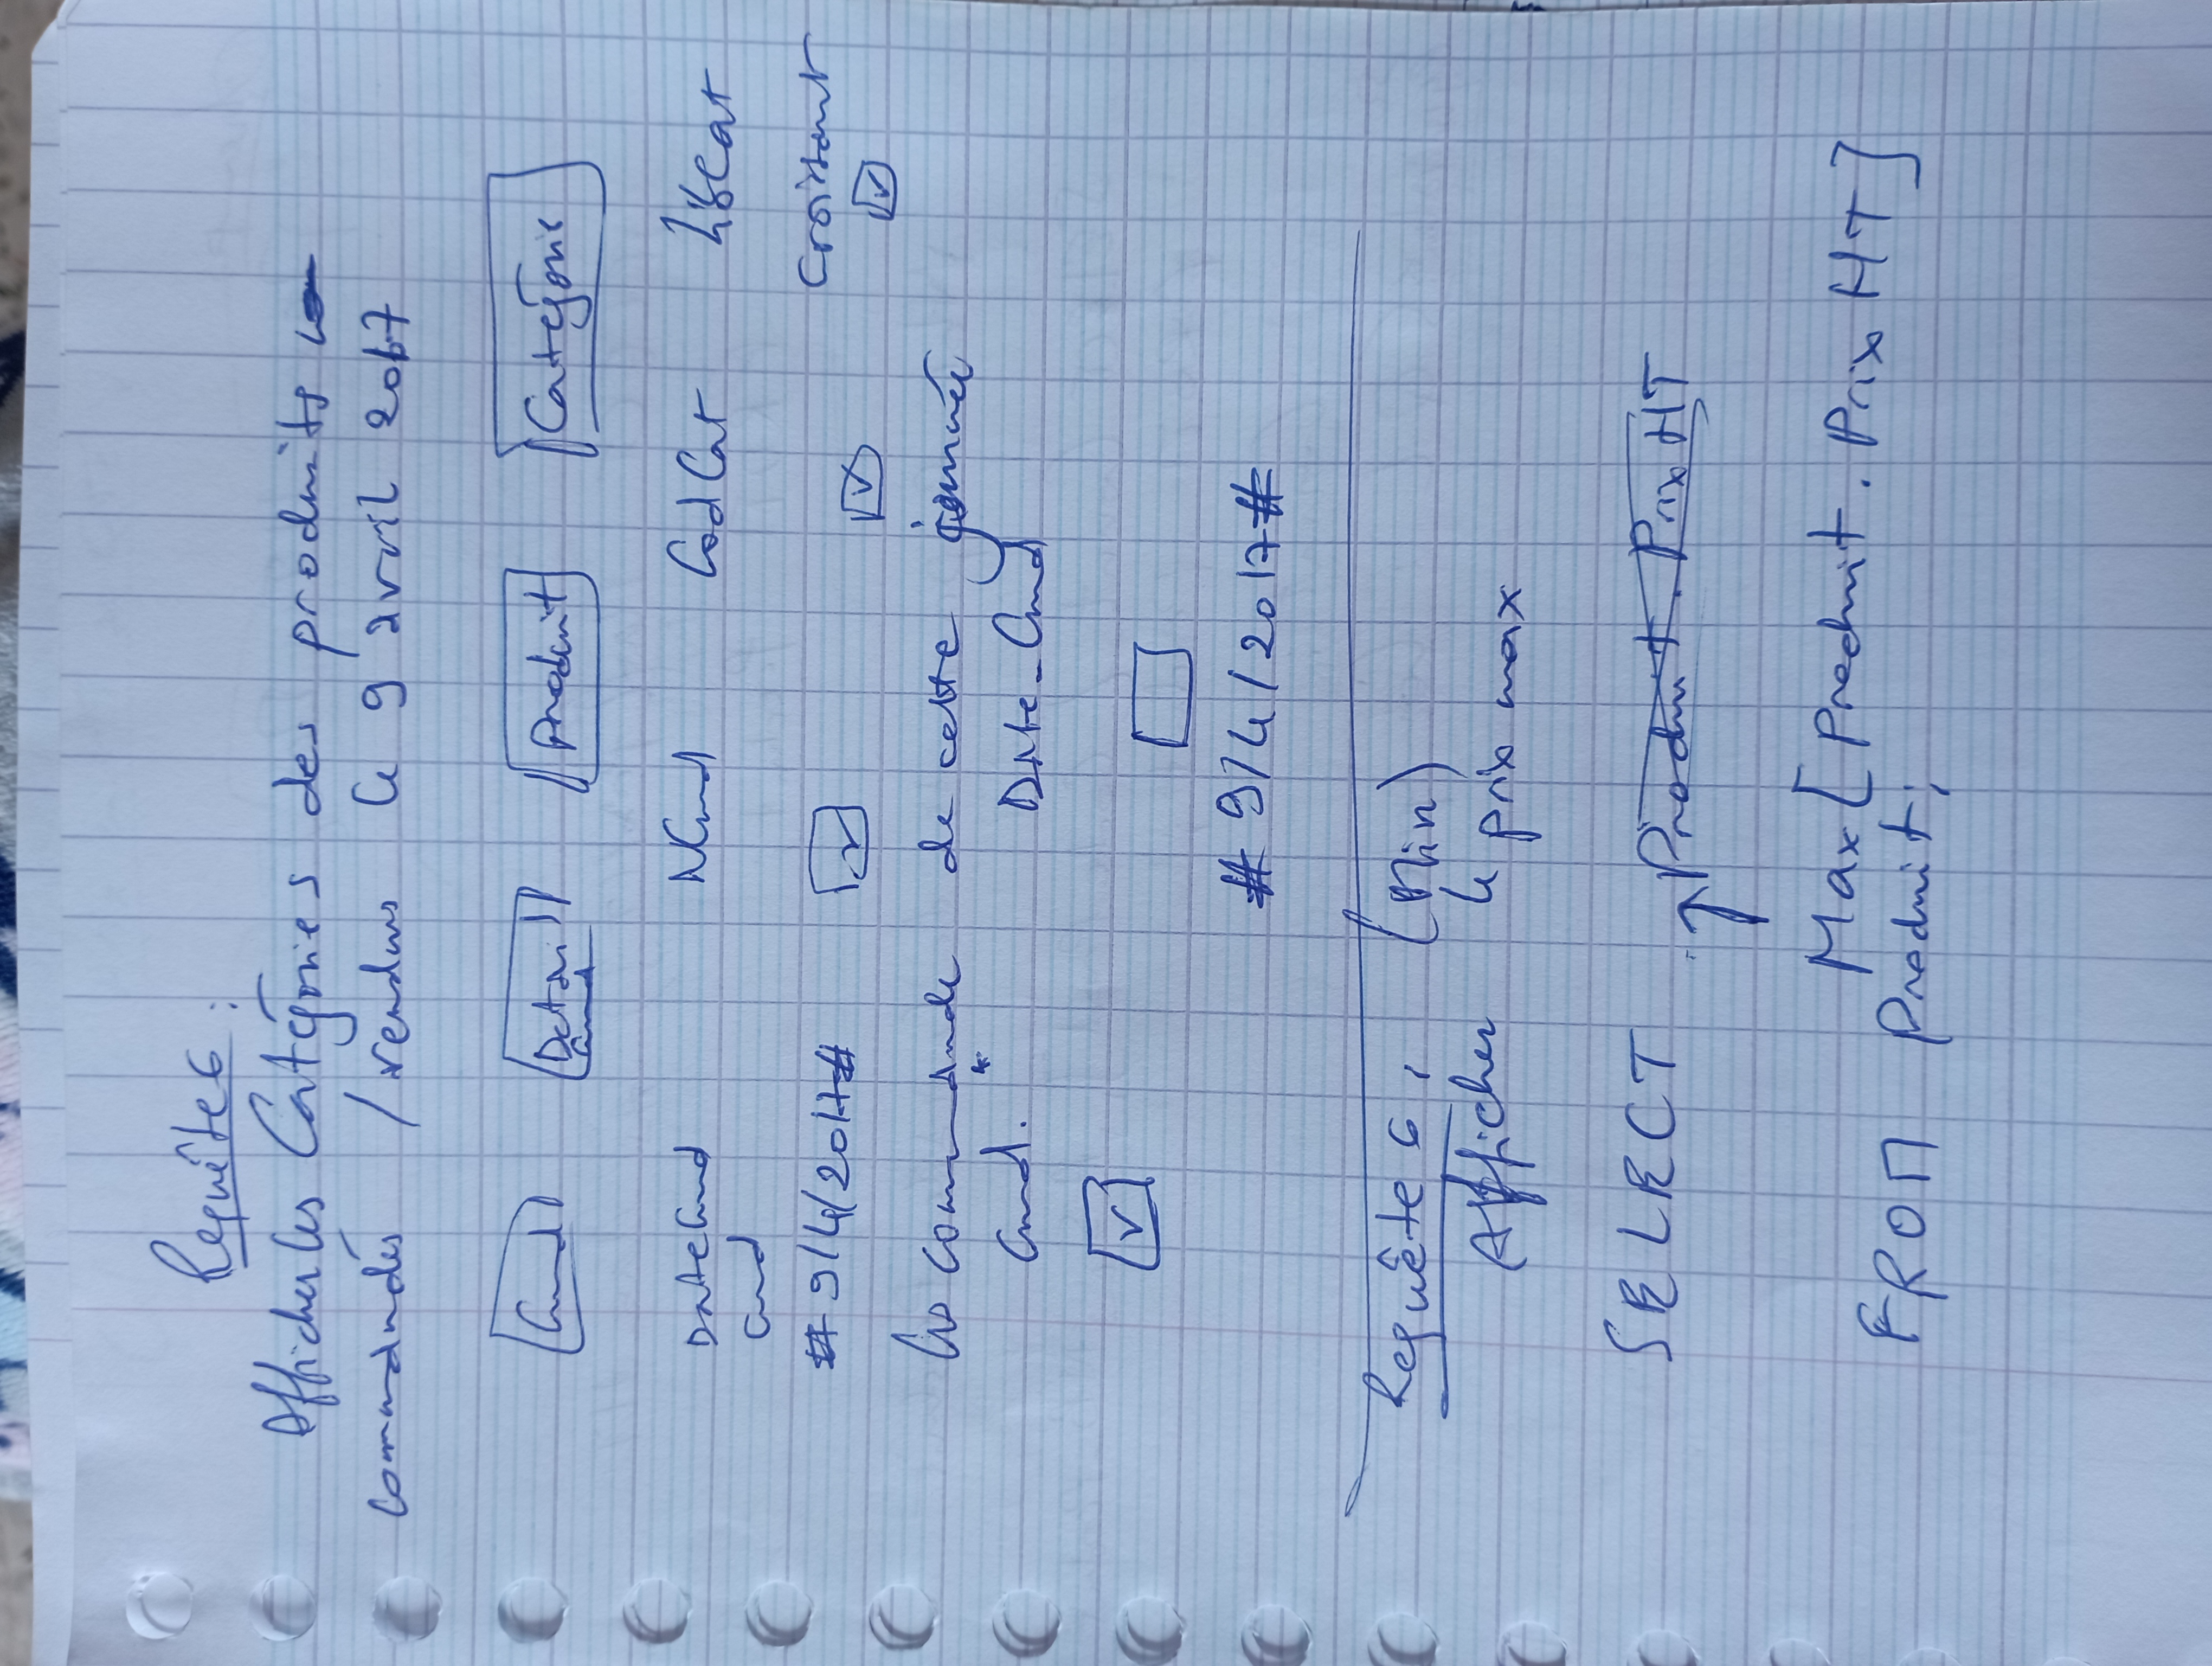 Requête 6 :
Afficher les Catégories des produits
commandés / vendus le 9 avril 2017
Cmd Detail Cmd Produit Catégorie
DateCmd NCmd CodCat LibCat
Cmd
# 9/4/2017# Croissant
les commande de cette journée
Cmd. * Date_Cmd
# 9/4/2017 #
Requête 6, (Min)
Afficher le prix max
SELECT Produit. Prix HT
Max [ Produit. Prix HT ]
FROM Produit;